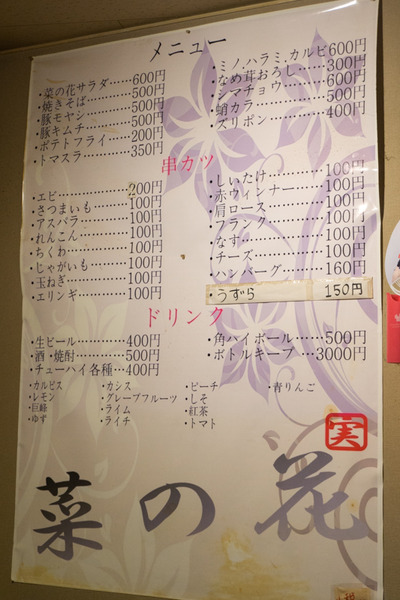 メニュー
・菜の花サラダ……600円
・焼きそば………500円
・豚モヤシ………500円
・豚キムチ………500円
・ポテトフライ…200円
・トマスラ………350円
・ミノ,ハラミ,カルビ600円
・なめ茸おろし…300円
・シマチョウ……600円
・蛸カラ…………500円
・ズリポン………400円
串カツ
・エビ……………200円
・さつまいも……100円
・アスパラ………100円
・れんこん………100円
・ちくわ…………100円
・じゃがいも……100円
・玉ねぎ…………100円
・エリンギ………100円
・しいたけ………100円
・赤ウィンナー…100円
・肩ロース………100円
・フランク………100円
・なす……………100円
・チーズ…………100円
・ハンバーグ……160円
・うずら 150円
ドリンク
・生ビール………400円
・酒・焼酎………500円
・チューハイ各種…400円
・角ハイボール……500円
・ボトルキープ…3000円
・カルピス
・レモン
・巨峰
・ゆず
・カシス
・グレープフルーツ
・ライム
・ライチ
・ピーチ
・しそ
・紅茶
・トマト
・青りんご
実
菜の花